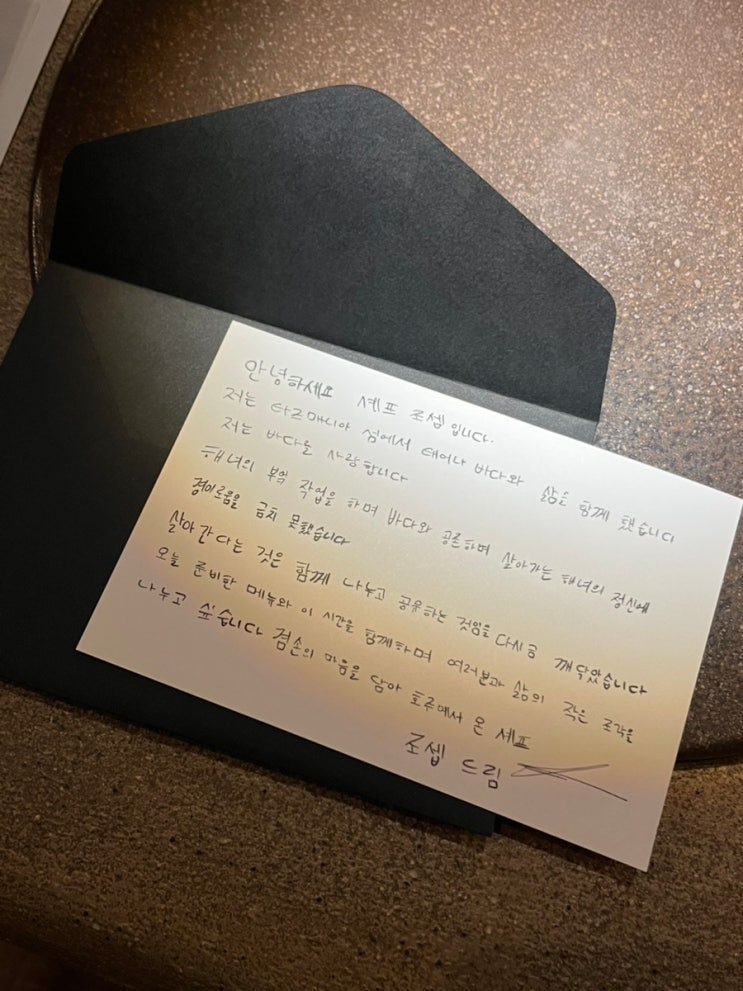 안녕하세요 셰프 조셉 입니다.
저는 타즈매니아 섬에서 태어나 바다와 삶을 함께 했습니다
저는 바다를 사랑합니다
해녀의 부엌 작업을 하며 바다와 공존하며 살아가는 해녀의 정신에
경이로움을 금치 못했습니다
살아간다는 것은 함께 나누고 공유하는 것임을 다시금 깨닥았습니다
오늘 준비한 메뉴와 이 시간을 함께하며 여러분과 삶의 작은 조각을
나누고 싶습니다 겸손의 마음을 담아 호주에서 온 셰프
조셉 드림